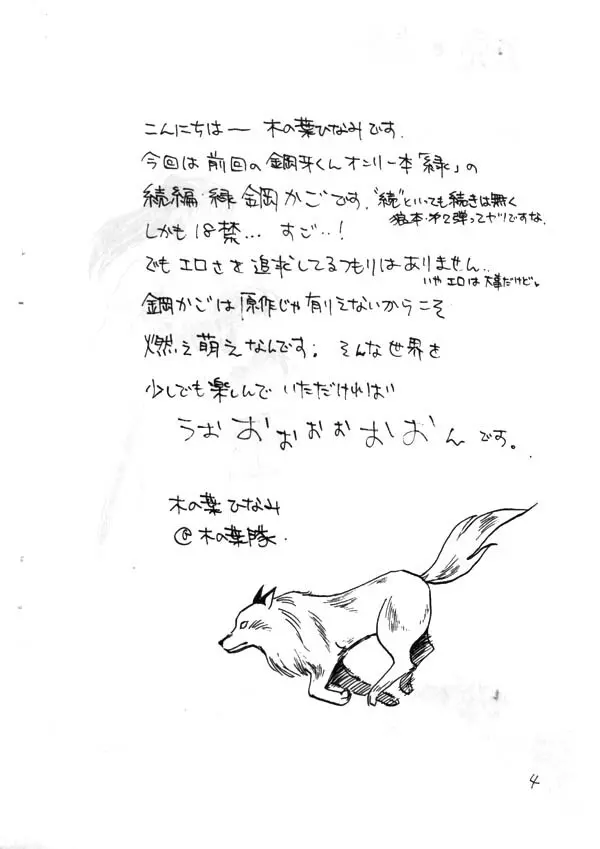 こんにちはー 木の葉ひなみです.
今回は前回の鋼牙くんオンリー本「緑」の
続編・緑 鋼かごです. "続"といっても続きは無く
しかも18禁… すご…!
でもエロさを追求してるつもりはありません..
いやエロは大事だけど。
鋼かごは原作じゃ有りえないからこそ
燃え萌えなんです。そんな世界を
少しでも楽しんでいただければ
うおおぉぉぉおおんです。
木の葉ひなみ
@木の葉隊.
4